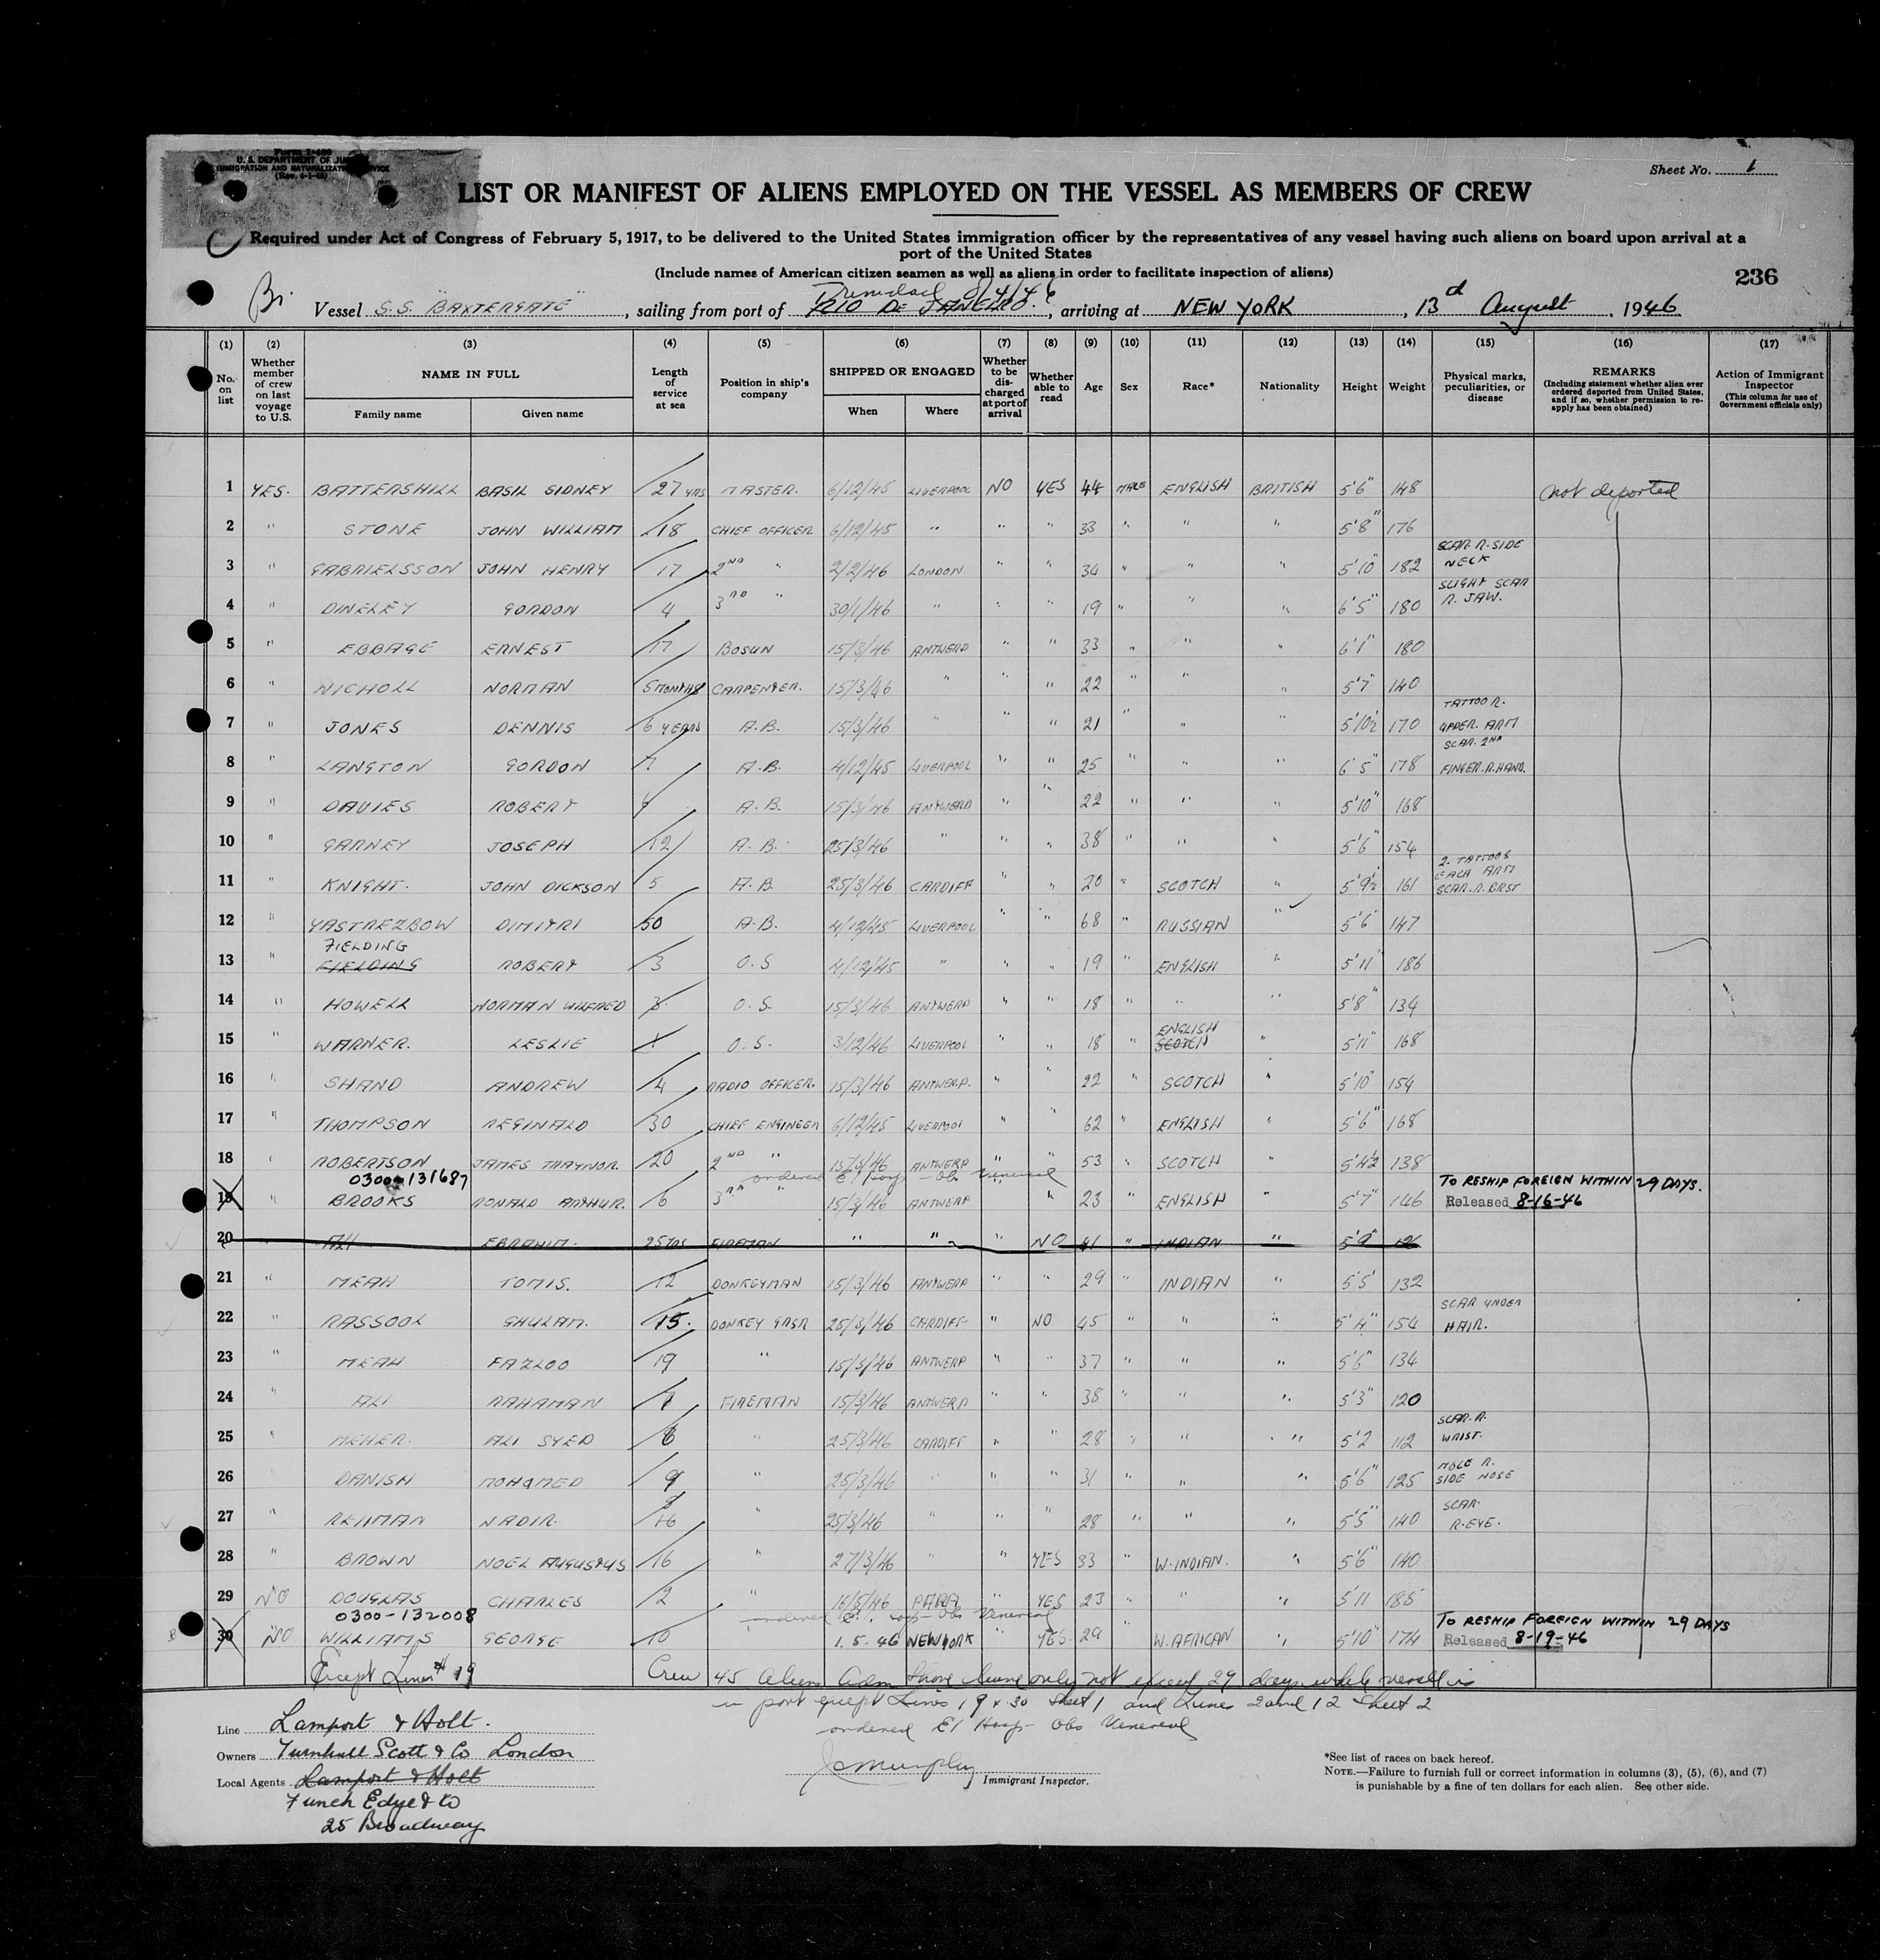 Form I-480
U. S. DEPARTMENT OF JUSTICE
IMMIGRATION AND NATURALIZATION SERVICE
(Rev. 4-1-45)
Sheet No. 1
LIST OR MANIFEST OF ALIENS EMPLOYED ON THE VESSEL AS MEMBERS OF CREW
Required under Act of Congress of February 5, 1917, to be delivered to the United States immigration officer by the representatives of any vessel having such aliens on board upon arrival at a
port of the United States
(Include names of American citizen seamen as well as aliens in order to facilitate inspection of aliens)
236
Br. Vessel S.S. "BAXTERGATE", sailing from port of RIO DE JANEIRO Trinidad, arriving at NEW YORK, 13th August, 1946
(1) (2) (3) (4) (5) (6) (7) (8) (9) (10) (11) (12) (13) (14) (15) (16) (17)
No. on list
Whether member of crew on last voyage to U.S.
NAME IN FULL
Family name
Given name
Length of service at sea
Position in ship's company
SHIPPED OR ENGAGED
When
Where
Whether to be discharged at port of arrival
Whether able to read
Age
Sex
Race*
Nationality
Height
Weight
Physical marks, peculiarities, or disease
REMARKS
(Including statement whether alien ever ordered deported from United States, and if so, whether permission to re-apply has been obtained)
Action of Immigrant Inspector
(This column for use of Government officials only)
1 YES. BATTERSHILL BASIL SIDNEY 27 YRS MASTER. 6/12/45 LIVERPOOL NO YES 44 MALE ENGLISH BRITISH 5'6" 148 not deported
2 " STONE JOHN WILLIAM 18 CHIEF OFFICER 6/12/45 " " " 33 " " " 5'8" 176
3 " GABRIELSSON JOHN HENRY 17 2ND " 2/2/46 LONDON " " 34 " " " 5'10" 182 SCAR R. SIDE NECK
4 " DINELEY GORDON 4 3RD " 30/1/46 " " " 19 " " " 6'5" 180 SLIGHT SCAR R. JAW.
5 " EBBAGE ERNEST 17 BOSUN 15/3/46 ANTWERP " " 33 " " " 6'1" 180
6 " NICHOLL NORMAN 5 MONTHS CARPENTER. 15/3/46 " " " 22 " " " 5'7" 140
7 " JONES DENNIS 6 YEARS A.B. 15/3/46 " " " 21 " " 5'10½ 170 TATTOO R. UPPER. ARM
8 " LANGTON GORDON 7 A.B. 4/12/45 LIVERPOOL " " 25 " " " 6'5" 178 SCAR. 2ND FINGER. R. HAND.
9 " DAVIES ROBERT A.B. 15/3/46 ANTWERP " " 22 " " " 5'10" 168
10 " GARNEY JOSEPH 12 A.B. 25/3/46 " " " 38 " " " 5'6" 154
11 " KNIGHT. JOHN DICKSON 5 A.B. 25/3/46 CARDIFF " " 20 " SCOTCH " 5'9½ 161 2. TATTOOS EACH ARM SCAR. R. BRST
12 " YASTREZBOW DIMITRI 50 A.B. 4/12/45 LIVERPOOL " " 68 " RUSSIAN " 5'6" 147
13 " FIELDING FIELDING ROBERT 3 O.S 4/12/45 " " " 19 " ENGLISH " 5'11" 186
14 " HOWELL NORMAN WILFRED 3 O.S. 15/3/46 ANTWERP " " 18 " " " 5'8" 134
15 " WARNER. LESLIE 1 O.S. 3/12/46 LIVERPOOL " " 18 " ENGLISH SCOTCH " 5'11" 168
16 " SHAND ANDREW 4 RADIO OFFICER. 15/3/46 ANTWERP. " " 22 " SCOTCH " 5'10" 154
17 " THOMPSON REGINALD 30 CHIEF ENGINEER 6/12/45 LIVERPOOL " " 62 " ENGLISH " 5'6" 168
18 " ROBERTSON JAMES TRAYNOR. 20 2ND " 15/3/46 ANTWERP " " 53 " SCOTCH " 5'4½ 138
0300-131687 ordered EI Hosp - Obs Venereal TO RESHIP FOREIGN WITHIN 29 DAYS.
19 " BROOKS RONALD ARTHUR. 6 3RD " 15/3/46 ANTWERP " 23 " ENGLISH " 5'7" 146 Released 8-16-46
20 ALI EBRAHIM. 25 YRS FIREMAN " " " NO 41 " INDIAN " 5'9" 126
21 " MEAH TOMIS. 12 DONKEYMAN 15/3/46 ANTWERP " " 29 " INDIAN " 5'5" 132
22 " RASSOOL GHULAM. 15. DONKEY GRSR 25/3/46 CARDIFF " NO 45 " " " 5'4" 154 SCAR UNDER HAIR.
23 " MEAH FAZLOO 19 " 15/3/46 ANTWERP " " 37 " " " 5'6" 134
24 " ALI RAHAMAN 7 FIREMAN 15/3/46 ANTWERP " " 38 " " " 5'3" 120
25 " MEHER. ALI SYED 8 " 25/3/46 CARDIFF " " 28 " " " 5'2 112 SCAR. R. WRIST.
26 DANISH MOHAMED 9 " 25/3/46 " " " 31 " " " 5'6" 125 MOLE R. SIDE NOSE
27 " REHMAN NADIR. 16 " 25/3/46 " " " 28 " " " 5'5" 140 SCAR. R. EYE.
28 " BROWN NOEL AUGUSTUS 16 " 27/3/46 " " YES 33 " W. INDIAN. " 5'6" 140
29 NO DOUGLAS CHARLES 2 " 16/5/46 PARA " YES 23 " " " 5'11 188
0300-132008 ordered E.I. Hosp - Obs Venereal TO RESHIP FOREIGN WITHIN 29 DAYS
30 NO WILLIAMS GEORGE 10 " 1.5.46 NEW YORK " YES 29 " W. AFRICAN " 5'10" 174 Released 8-19-46
Except Lines # 19 Crew 45 Aliens Adm Shore leave only not exceed 29 days while vessel is
in port except Lines 19 & 30 Sheet 1 and Lines 2 and 12 Sheet 2
ordered EI Hosp - Obs Venereal
Line Lamport & Holt.
Owners Turnbull Scott & Co London
Local Agents Lamport & Holt
Funch Edye & Co
25 Broadway
J C Murphy
Immigrant Inspector.
*See list of races on back hereof.
NOTE.—Failure to furnish full or correct information in columns (3), (5), (6), and (7)
is punishable by a fine of ten dollars for each alien. See other side.